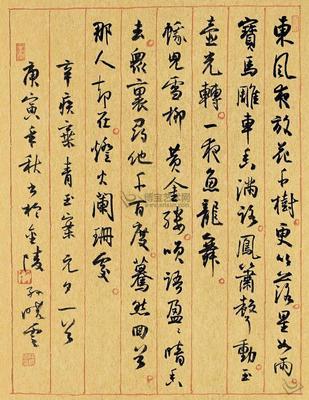 東風夜放花千樹更吹落星如雨
寶馬雕車香滿路鳳簫聲動玉
壺光轉一夜魚龍舞
蛾兒雪柳黃金縷笑語盈〻暗香
去眾裏尋他千百度驀然回首
那人卻在燈火闌珊處
辛疾棄青玉案元夕一首
庚寅年秋書於金陵孫曉雲
博宝艺术网